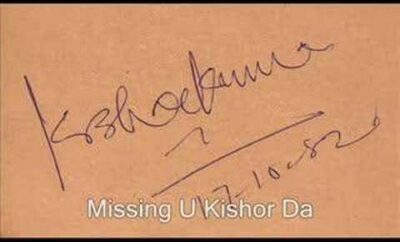 Kishore Kumar
17-10-82
Missing U Kishor Da